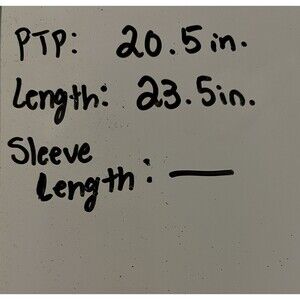 PTP: 20.5in.
Length: 23.5in.
Sleeve
Length: —